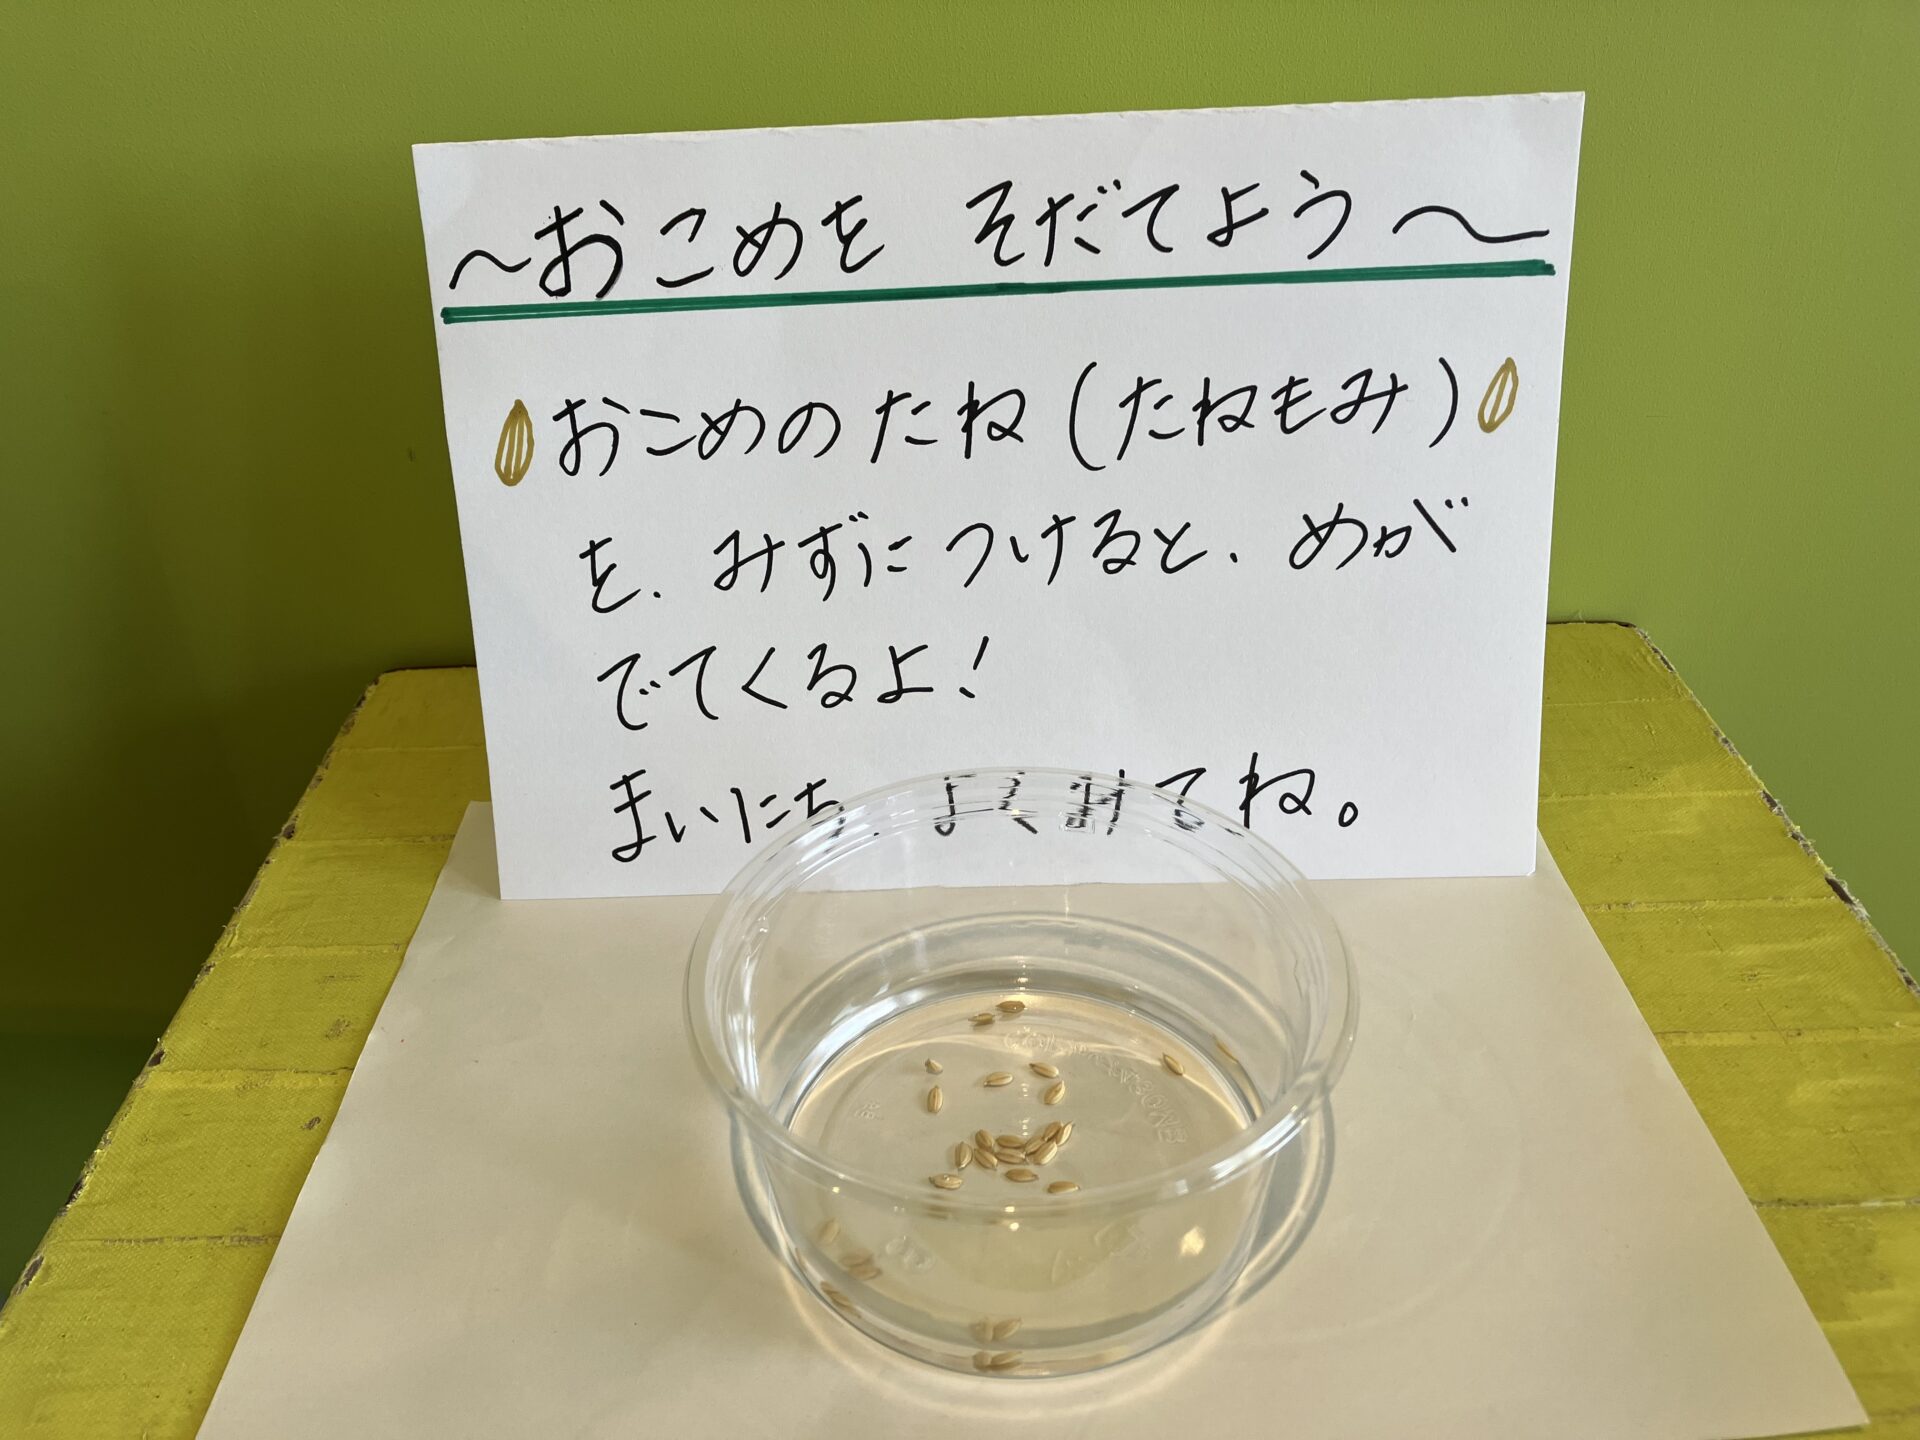 ～おこめを そだてよう～
おこめのたね(たねもみ)
を、みずにつけると、めが
でてくるよ！
まいにち、よくみてね。